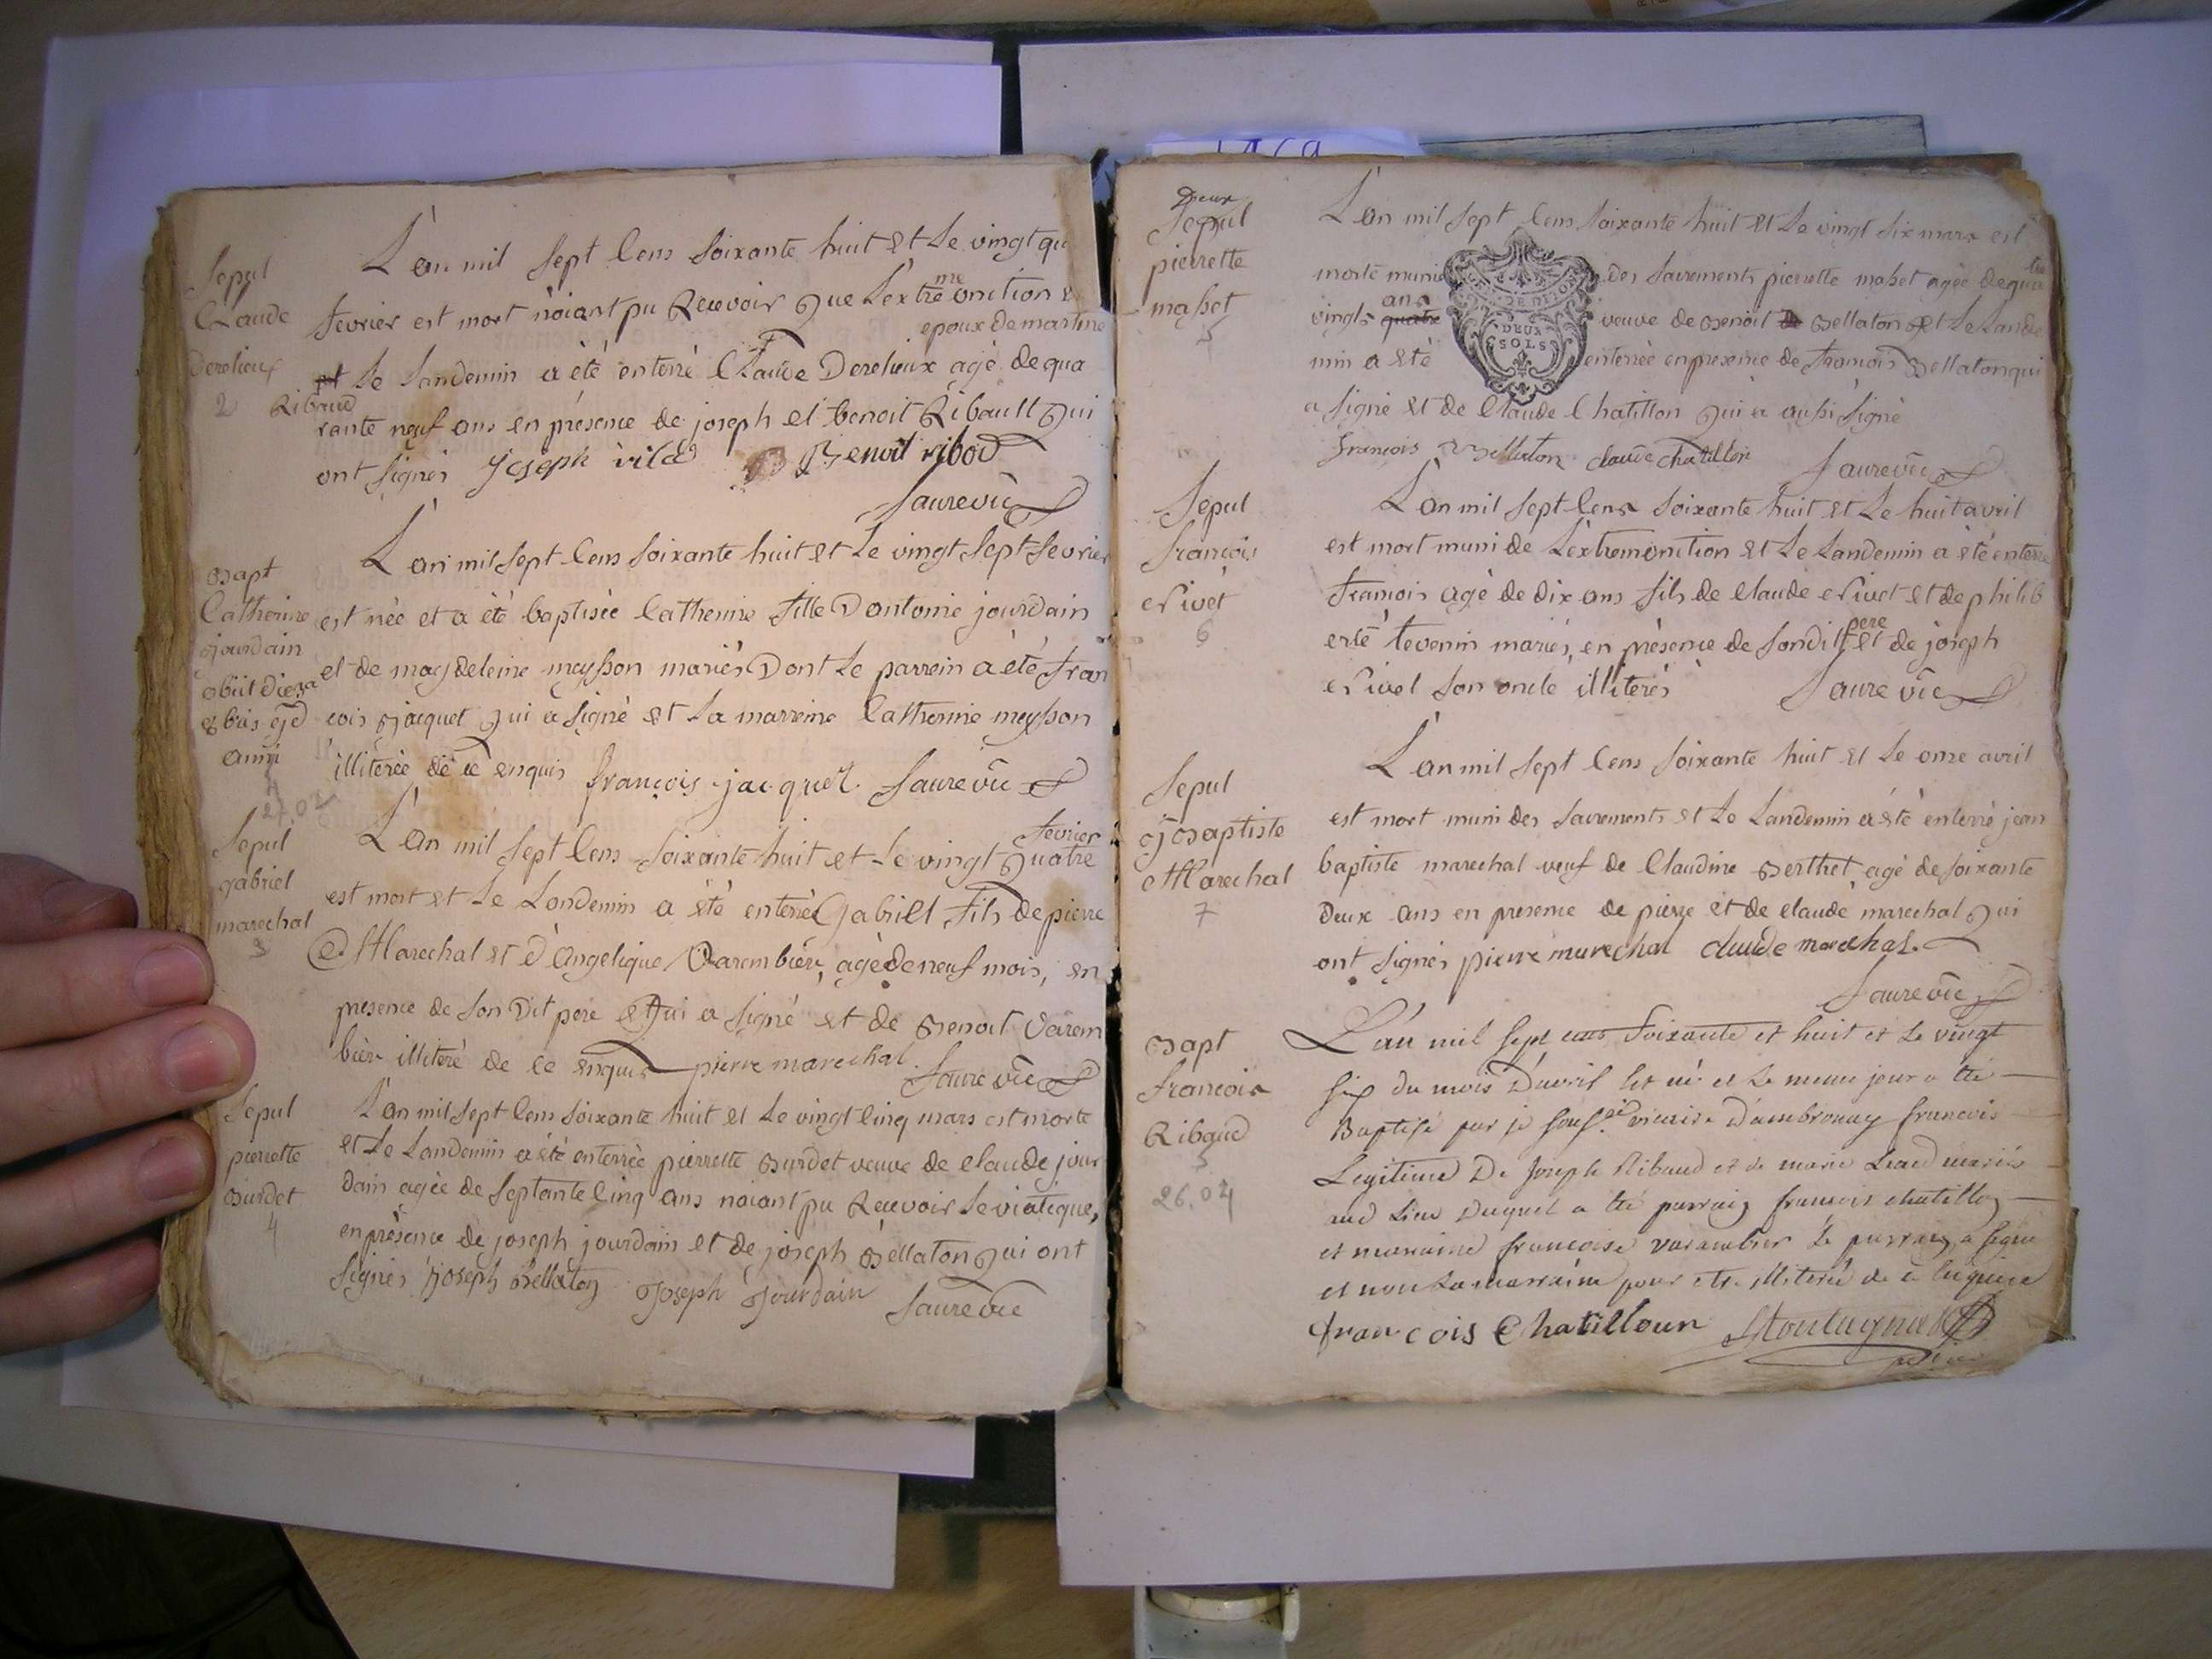 Sepul
Claude
Derelieux
2
L'an mil sept Cens soixante huit et Le vingt qu
fevrier est mort n'oiant pu Recevoir que L'extreme onction &
epoux de martine
Ribaud
Le Landemin a été enterré Claude Derelieux agé de qua
rante neuf ans en présence de joseph et benoit Ribault qui
ont signés Joseph Benoit ribod
faure vic
Bapt
Catherine
jourdain
obiit die
8bris ejd
anni
27.02
L'an mil sept Cens soixante huit et Le vingt sept fevrier
est née et a été baptisée Catherine fille D'antoine jourdain
et de magdeleine meysson mariés Dont Le parrein a été fran
cois jacquet qui a signé et La marreine Catherine meysson
illiterée de ce enquis françois jacquet faure vic
Sepul
gabriel
marechal
3
L'an mil sept Cens soixante huit et Le vingt quatre fevrier
est mort et Le Landemin a été enterré Gabriel fils de pierre
Marechal et d'Angelique Varembier, agé de neuf mois, en
presence de son Dit pere qui a signé et de Benoit Varem
bier illiteré de ce enquis pierre marechal. faure vic
Sepul
pierrette
Burdet
4
L'an mil sept Cens soixante huit et Le vingt cinq mars est morte
et Le Landemin a été enterrée pierrette Burdet veuve de Claude jour
dain agée de septante cinq ans naiant pu Recevoir Le viatique,
en présence de joseph jourdain et de joseph Bellaton qui ont
signés joseph Bellaton Joseph Jourdain faure vic
Deux
Sepul
pierrette
mabet
5
L'an mil sept Cens soixante huit et Le vingt six mars est
morte munie des sacrements pierrette mabet agée de quatre
vingts ans veuve de Benoit Bellaton et Le Lande
min a été enterrée en presence de francois Bellaton qui
a signé et de Claude Chatillon qui a aussi signé
françois Bellaton claude chatillon faure vic
DEUX
SOLS
Sepul
françois
Nivet
6
L'an mil sept Cens soixante huit et Le huit avril
est mort muni de L'extremonction et Le Landemin a été enterré
francois agé de dix ans fils de Claude Nivet et de philib
erte tevenin mariés, en présence de sondit pere et de joseph
Nivet son oncle illiterés faure vic
Sepul
j Baptiste
Marechal
7
L'an mil sept Cens soixante huit et Le onze avril
est mort muni des sacrements et Le Landemin a été enterré jean
baptiste marechal veuf de Claudine Berthet, agé de soixante
Deux ans en presence de pierre et de claude marechal qui
ont signés pierre marechal claude marechal.
faure vic
Bapt
francois
Ribaud
5
26.04
L'an mil sept cens soixante et huit et le vingt
six du mois d'avril est né et le meme jour a été
Baptisé par je soussé vicaire d'ambronay francois
Legitime De Joseph Ribaud et de marie mariés
aud Lieu Duquel a été parraig francois chatillon
et marraine francoise varambier Le parraig a signé
et non La marraine pour etre illiterée de ce enquise
francois Chatilloun